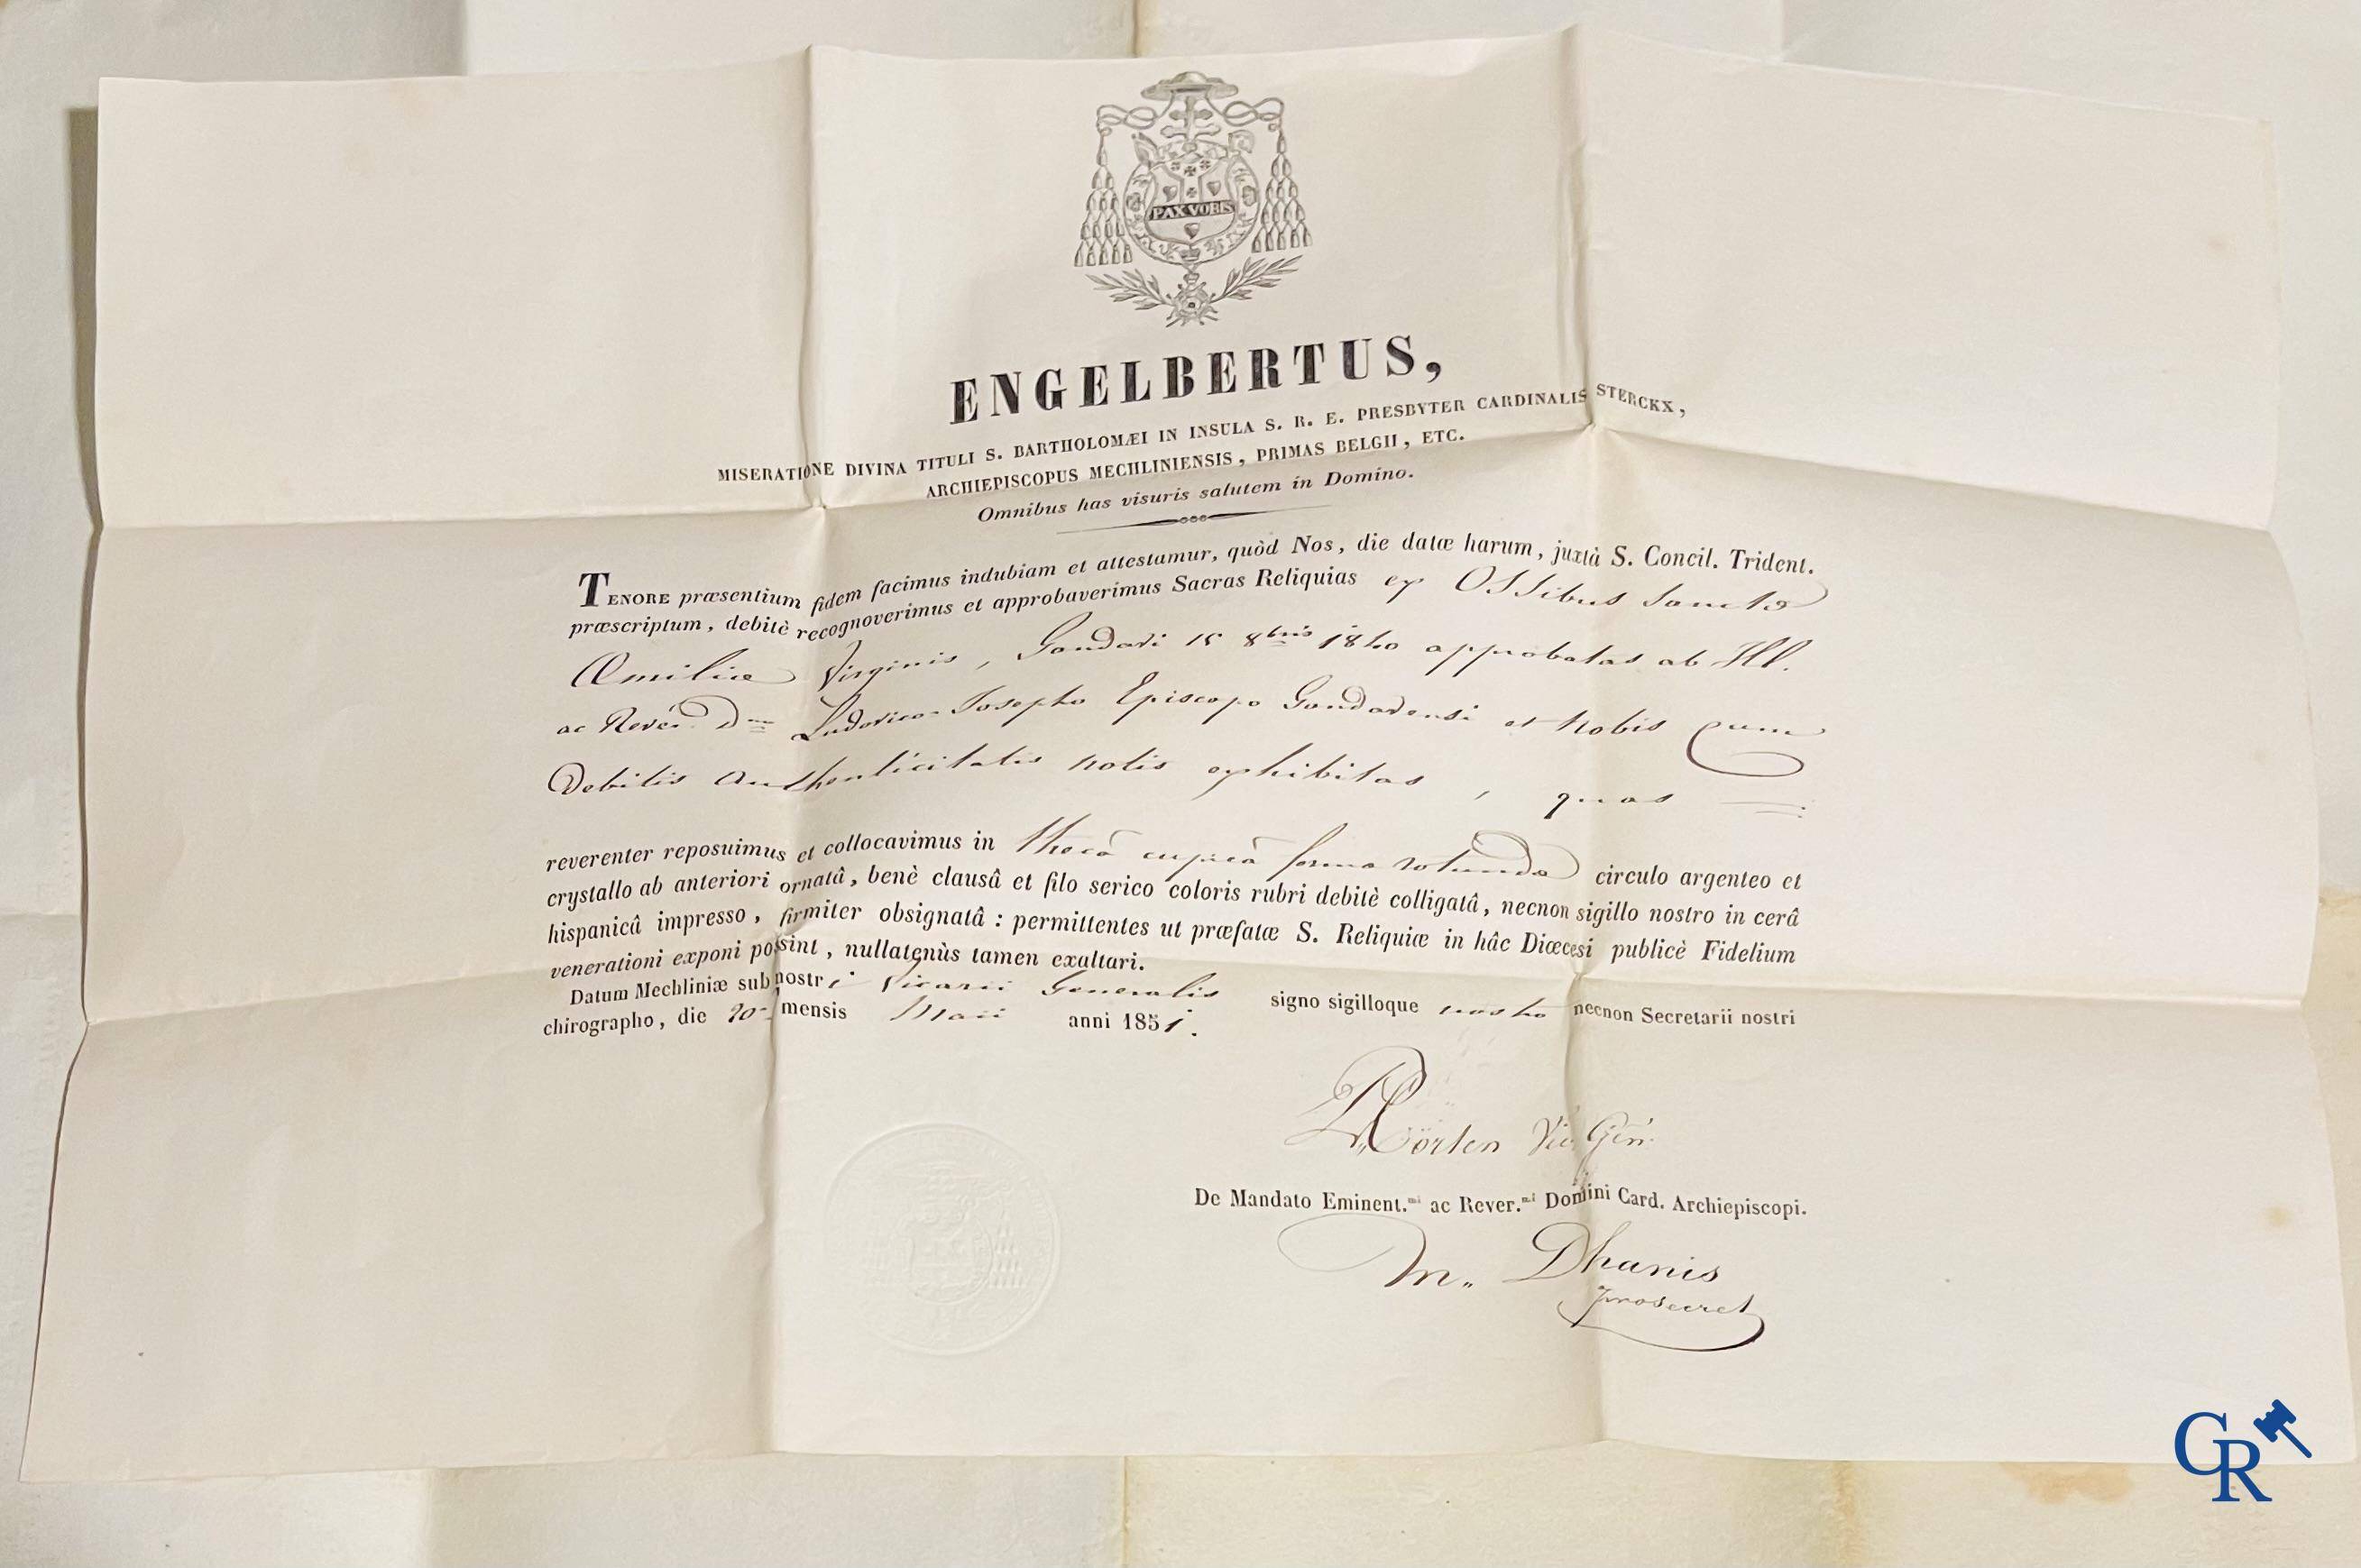 PAX VOBIS
ENGELBERTUS,
MISERATIONE DIVINA TITULI S. BARTHOLOMÆI IN INSULA S. R. E. PRESBYTER CARDINALIS STERCKX,
ARCHIEPISCOPUS MECHLINIENSIS, PRIMAS BELGII, ETC.
Omnibus has visuris salutem in Domino.
TENORE præsentium fidem facimus indubiam et attestamur, quòd Nos, die datæ harum, juxtà S. Concil. Trident.
præscriptum, debitè recognoverimus et approbaverimus Sacras Reliquias ex Ossibus Sanctæ
Æmiliæ Virginis, Gandavi 15 8bris 1840 approbatas ab Ill.
ac Rever. Dno Ludovico-Josepho Episcopo Gandavensi et nobis cum
Debitis Authenticitatis notis exhibitas, quas
reverenter reposuimus et collocavimus in thecâ cupreâ formæ rotundæ circulo argenteo et
crystallo ab anteriori ornatâ, benè clausâ et filo serico coloris rubri debitè colligatâ, necnon sigillo nostro in cerâ
hispanicâ impresso, firmiter obsignatâ : permittentes ut præfatæ S. Reliquiæ in hâc Diœcesi publicè Fidelium
venerationi exponi possint, nullatenùs tamen exaltari.
Datum Mechliniæ sub nostri Vicarii Generalis signo sigilloque nostro necnon Secretarii nostri
chirographo, die 20 mensis Maii anni 1851.
Corten Vic. Gen.
De Mandato Eminent.mi ac Rever.mi Domini Card. Archiepiscopi.
M. Dhanis
prosecret
CR